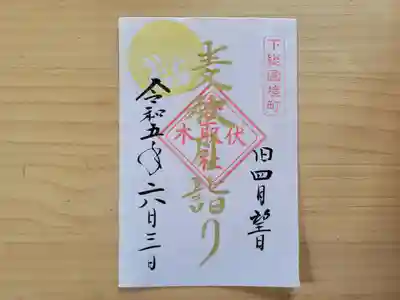 下総国境町
旧四月望日
麦秋月詣り
伏木
香取社
令和五年六月三日